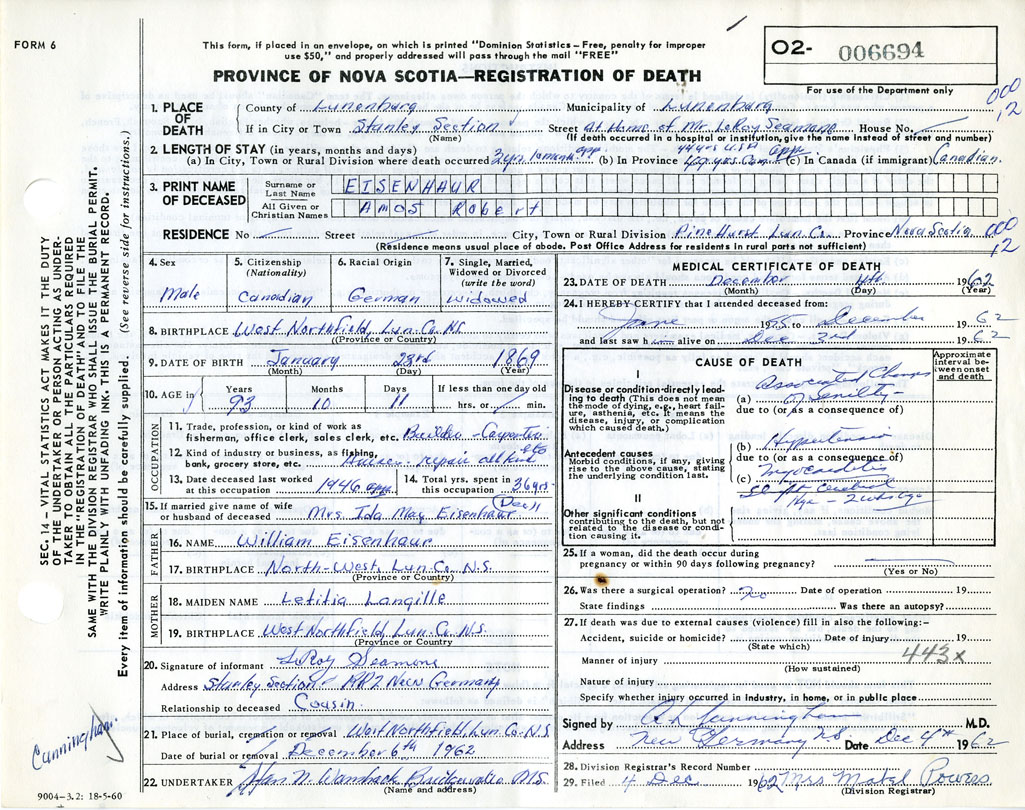 FORM 6
This form, if placed in an envelope, on which is printed "Dominion Statistics – Free, penalty for improper
use $50," and properly addressed will pass through the mail "FREE"
PROVINCE OF NOVA SCOTIA—REGISTRATION OF DEATH
O2- 006694
For use of the Department only
000
12
1. PLACE OF DEATH
County of Lunenburg Municipality of Lunenburg
If in City or Town Stanley Section Street at Home of Mr LeRoy Seamone House No.
(Name) (If death occurred in a hospital or institution, give the name instead of street and number)
2. LENGTH OF STAY (in years, months and days)
(a) In City, Town or Rural Division where death occurred 2 yrs. 10 month app (b) In Province (c) In Canada (if immigrant) Canadian.
3. PRINT NAME OF DECEASED
Surname or Last Name EISENHAUR
All Given or Christian Names Amos Robert
RESIDENCE No Street City, Town or Rural Division Pine Hurst Lun. Co. Province Nova Scotia
(Residence means usual place of abode. Post Office Address for residents in rural parts not sufficient)
000
12
4. Sex
Male
5. Citizenship
(Nationality)
Canadian
6. Racial Origin
German
7. Single, Married, Widowed or Divorced
(write the word)
widowed
8. BIRTHPLACE West Northfield, Lun. Co. N.S.
(Province or Country)
9. DATE OF BIRTH January 23rd 1869
(Month) (Day) (Year)
10. AGE in Years Months Days If less than one day old
93 10 11 hrs. or min.
OCCUPATION
11. Trade, profession, or kind of work as
fisherman, office clerk, sales clerk, etc. Builder - Carpenter
12. Kind of industry or business, as fishing,
bank, grocery store, etc. Houses - repair all kind
13. Date deceased last worked
at this occupation 1946 app.
14. Total yrs. spent in
this occupation 36 yrs.
15. If married give name of wife
or husband of deceased Mrs. Ida May Eisenhaur (Dec'd)
FATHER
16. NAME William Eisenhaur
17. BIRTHPLACE North-West, Lun. Co. N.S.
(Province or Country)
MOTHER
18. MAIDEN NAME Letitia Langille
19. BIRTHPLACE West Northfield, Lun. Co. N.S.
(Province or Country)
20. Signature of informant LeRoy Seamone
Address Stanley Section - RR2 New Germany
Relationship to deceased Cousin.
21. Place of burial, cremation or removal West Northfield, Lun. Co. N.S
Date of burial or removal December 6th 1962
22. UNDERTAKER Bridgewater N.S.
(Name and address)
MEDICAL CERTIFICATE OF DEATH
23. DATE OF DEATH December 4th. 1962
(Month) (Day) (Year)
24. I HEREBY CERTIFY that I attended deceased from:
June to December 1962
and last saw him alive on Dec 3rd 1962
CAUSE OF DEATH
Approximate interval between onset and death
I
Disease or condition directly leading to death (This does not mean the mode of dying, e.g., heart failure, asthenia, etc. It means the disease, injury, or complication which caused death.)
(a) Associated Changes of Senility
due to (or as a consequence of)
Antecedent causes
Morbid conditions, if any, giving rise to the above cause, stating the underlying condition last.
(b) Hypertension
due to (or as a consequence of)
(c) Myocarditis
II
Other significant conditions
contributing to the death, but not related to the disease or condition causing it.
25. If a woman, did the death occur during
pregnancy or within 90 days following pregnancy?
(Yes or No)
26. Was there a surgical operation? No Date of operation 19
State findings Was there an autopsy?
27. If death was due to external causes (violence) fill in also the following:-
Accident, suicide or homicide? Date of injury 19
(State which)
Manner of injury 443x
(How sustained)
Nature of injury
Specify whether injury occurred in industry, in home, or in public place
Signed by Cunningham M.D.
Address New Germany NS Date Dec 4th 1962
28. Division Registrar's Record Number
29. Filed 4 Dec 1962 Mrs Powers
(Division Registrar)
SEC. 14 – VITAL STATISTICS ACT MAKES IT THE DUTY
OF THE UNDERTAKER OR PERSON ACTING AS UNDER-
TAKER TO OBTAIN ALL THE PARTICULARS REQUIRED
IN THE "REGISTRATION OF DEATH" AND TO FILE THE
SAME WITH THE DIVISION REGISTRAR WHO SHALL ISSUE THE BURIAL PERMIT.
WRITE PLAINLY WITH UNFADING INK. THIS IS A PERMANENT RECORD.
Every item of information should be carefully supplied. (See reverse side for instructions.)
Cunningham
9004–3.2: 18-5-60